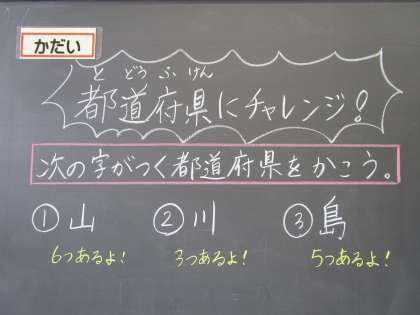 かだい
とどうふけん
都道府県にチャレンジ!
次の字がつく都道府県をかこう。
①山 ②川 ③島
6つあるよ! 3つあるよ! 5つあるよ!